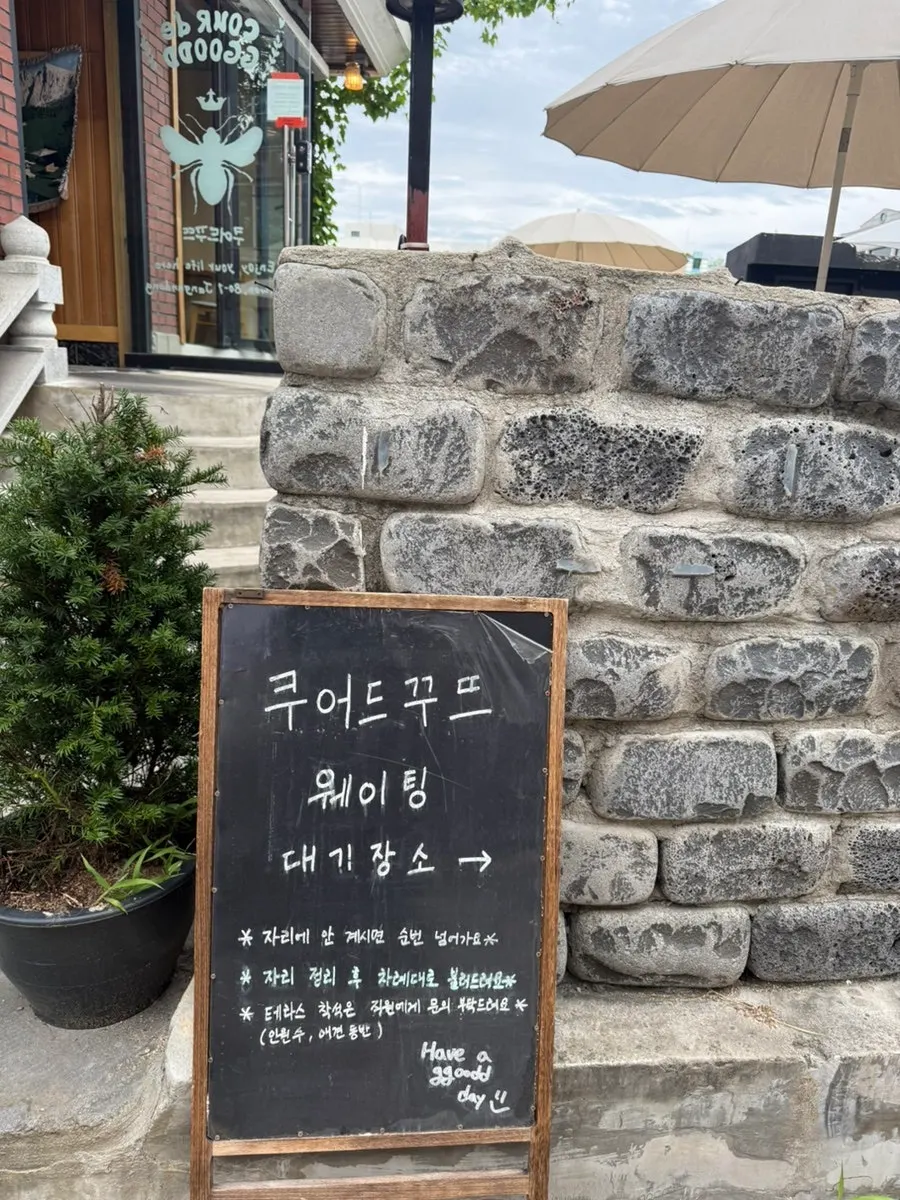 COUR de
GGOODD
쿠어드꾸뜨
Enjoy your life here
쿠어드꾸뜨
웨이팅
대기장소 →
* 자리에 안 계시면 순번 넘어가요 *
* 자리 정리 후 차례대로 불러드려요 *
* 테라스 착석은 직원에게 문의 부탁드려요 *
(인원수, 애견동반)
Have a
ggoodd
day